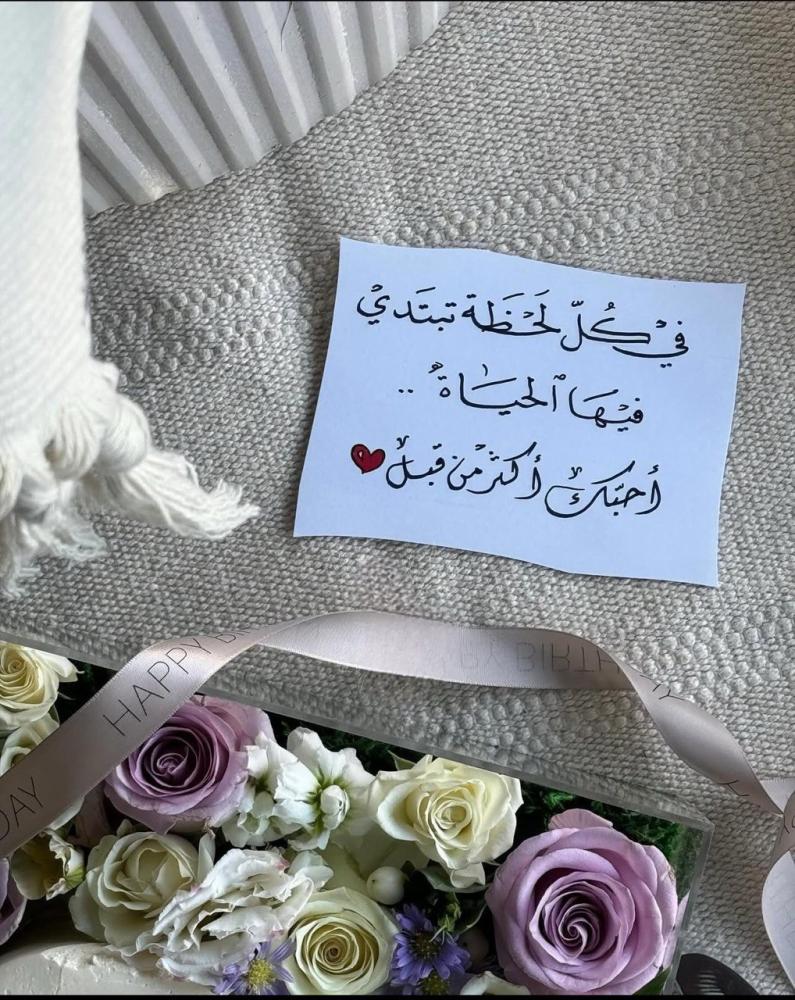 في كُلّ لَحْظَة تبتَدي
فيهَا ٱلحيَاةُ ..
أحبّك أكثر من قبل
HAPPY BIRTH
DAY